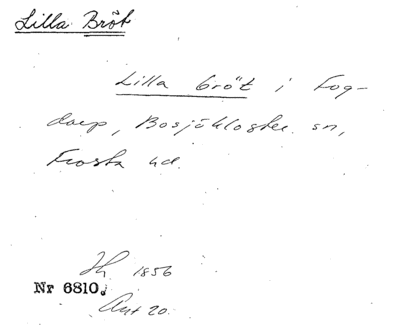 Lilla Bröt
Lilla bröt i Fog-
darp, Bosjökloster sn,
Frosta hd.
1856
Nr 6810.
20.